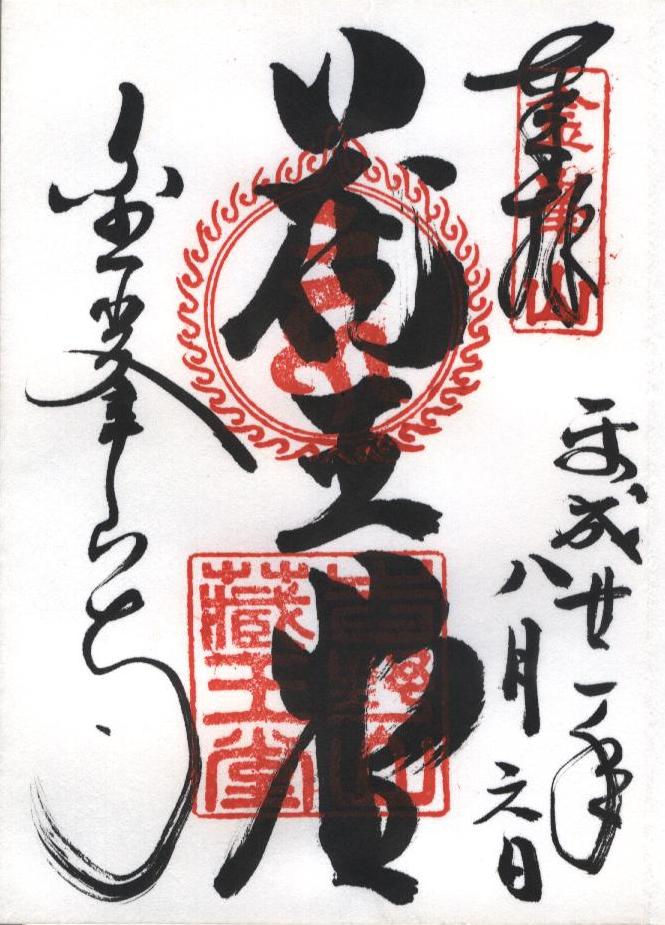 奉拝
金峯山
平成廿一年
八月六日
蔵王堂
吉野山
藏王堂
金峯山寺